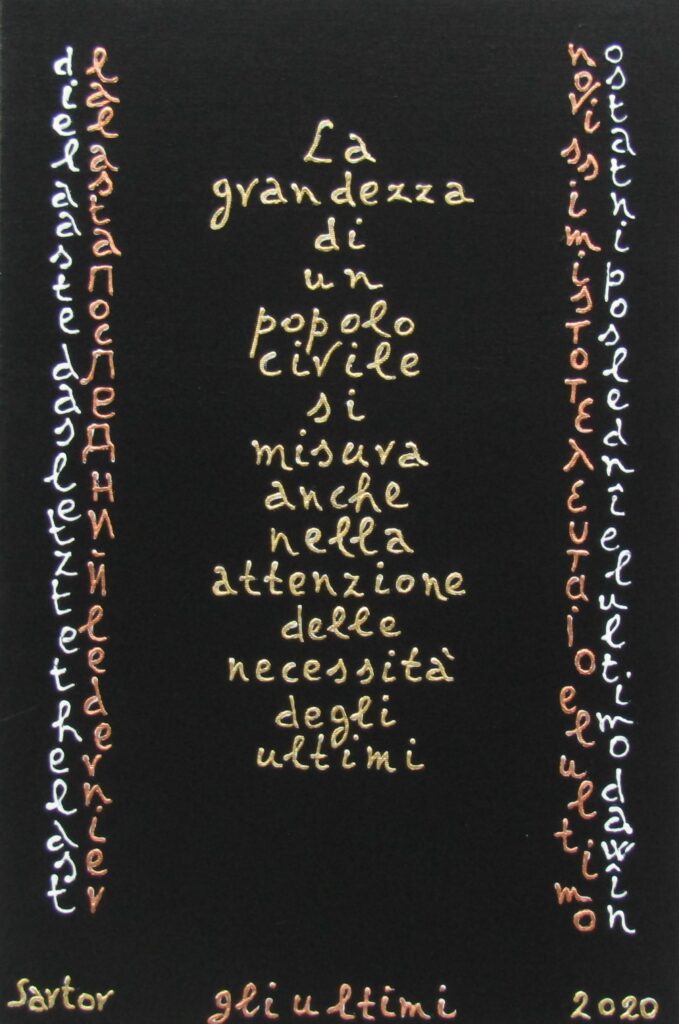 dielaastedasletztethelast
lalastaпоследнийledernier
La
grandezza
di
un
popolo
civile
si
misura
anche
nella
attenzione
delle
necessità
degli
ultimi
novissimisτοτελευταιοelultimo
ostatniposlednîelultimodawîn
Sartor gli ultimi 2020